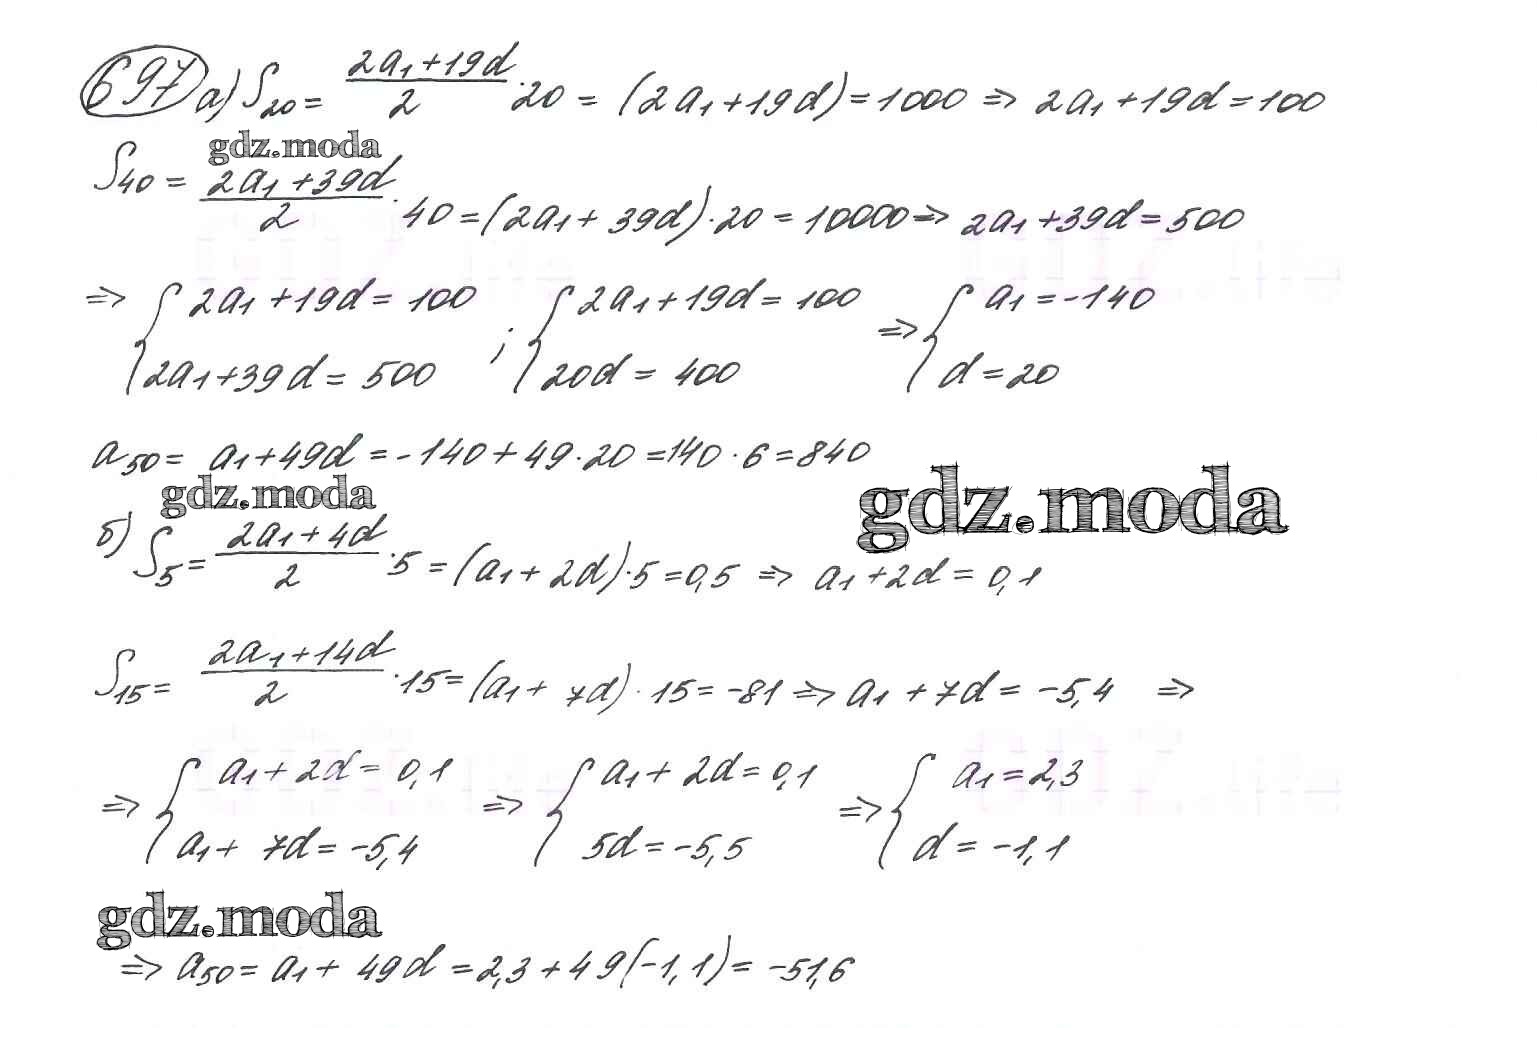 697 а) S₂₀ = (2a₁+19d)/2 · 20 = (2a₁+19d) = 1000 => 2a₁+19d = 100
gdz.moda
S₄₀ = (2a₁+39d)/2 · 40 = (2a₁+39d)·20 = 10000 => 2a₁+39d = 500
=> { 2a₁+19d = 100 ; { 2a₁+19d = 100 => { a₁ = -140
2a₁+39d = 500 20d = 400 d = 20
a₅₀ = a₁+49d = -140+49·20 = 140·6 = 840
gdz.moda
gdz.moda
б) S₅ = (2a₁+4d)/2 · 5 = (a₁+2d)·5 = 0,5 => a₁+2d = 0,1
S₁₅ = (2a₁+14d)/2 · 15 = (a₁+7d)·15 = -81 => a₁+7d = -5,4 =>
=> { a₁+2d = 0,1 => { a₁+2d = 0,1 => { a₁ = 2,3
a₁+7d = -5,4 5d = -5,5 d = -1,1
gdz.moda
=> a₅₀ = a₁+49d = 2,3+49(-1,1) = -51,6